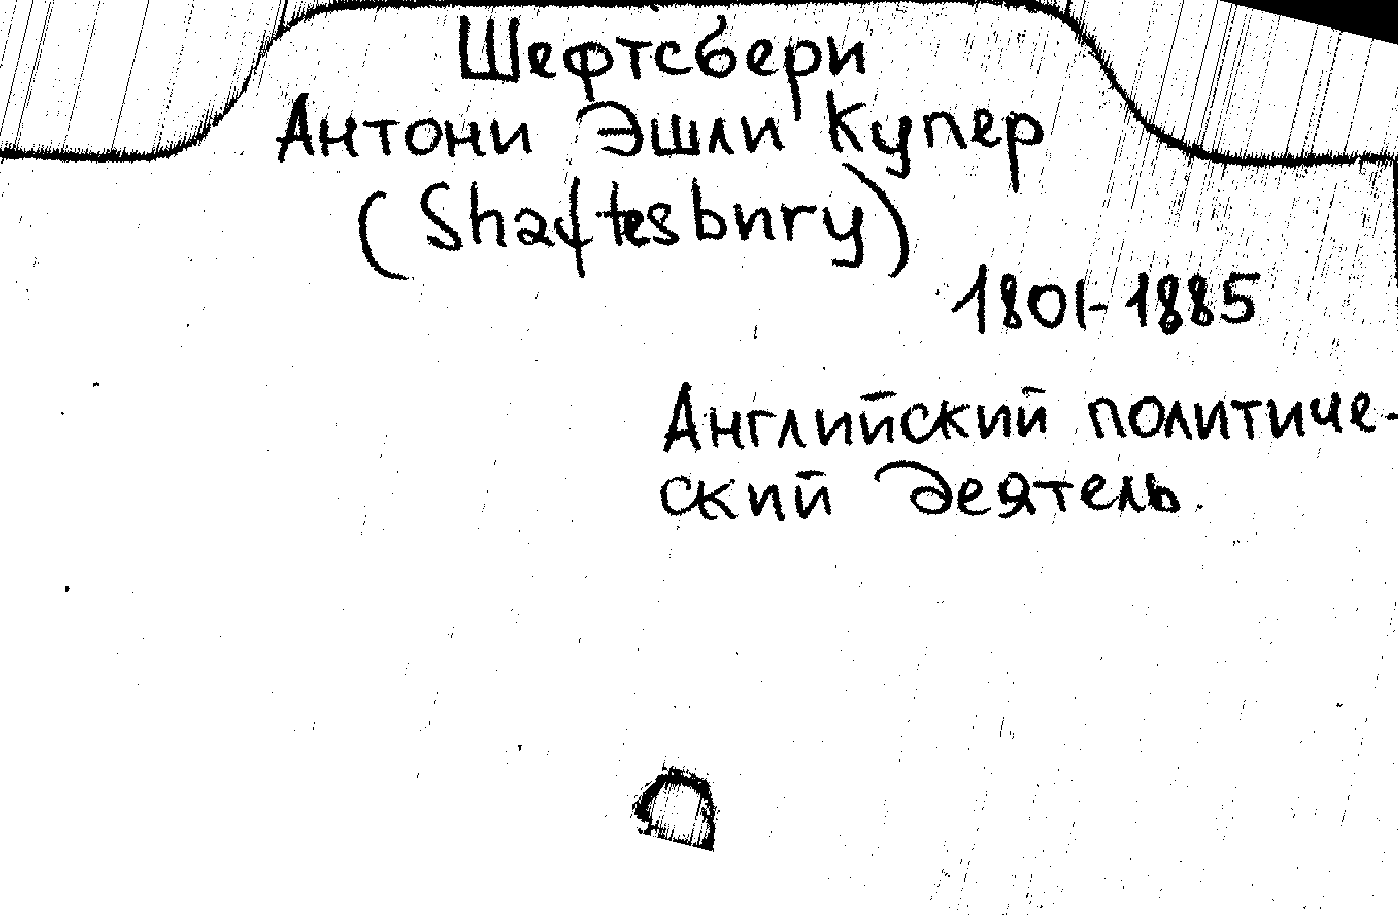 Шефтсбери
Антони Эшли Купер
(Shaftesbury)
1801-1885
Английский политиче-
ский деятель.